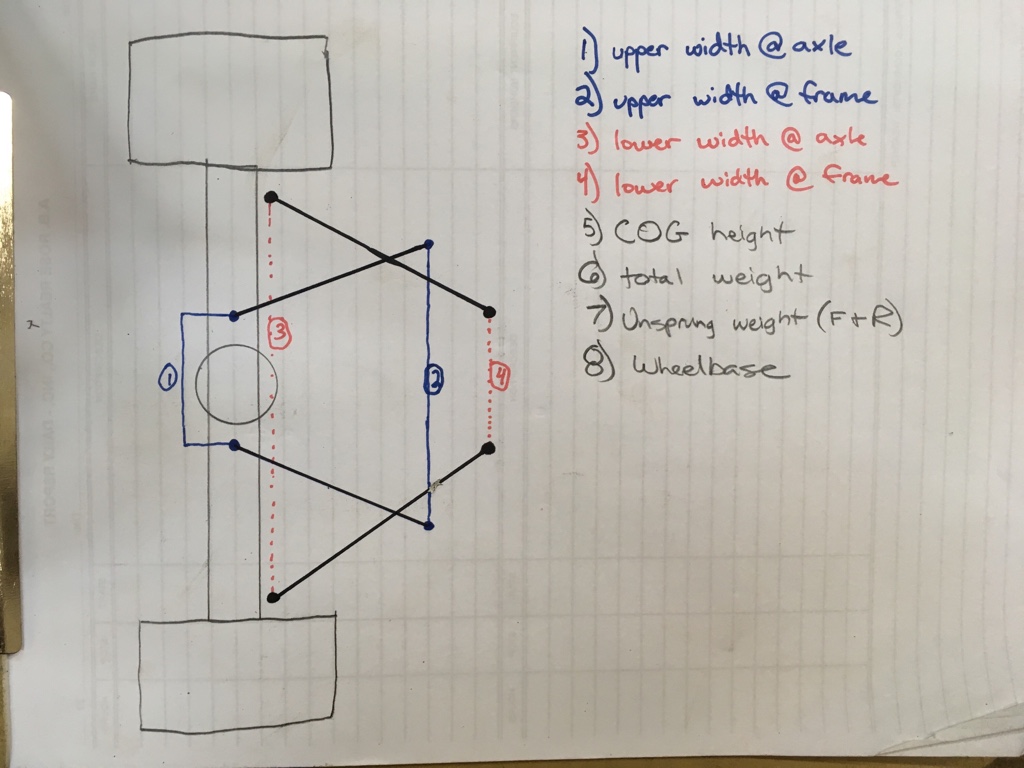 1) upper width @ axle
2) upper width @ frame
3) lower width @ axle
4) lower width @ frame
5) COG height
6) total weight
7) Unsprung weight (F+R)
8) Wheelbase
3
1
2
4